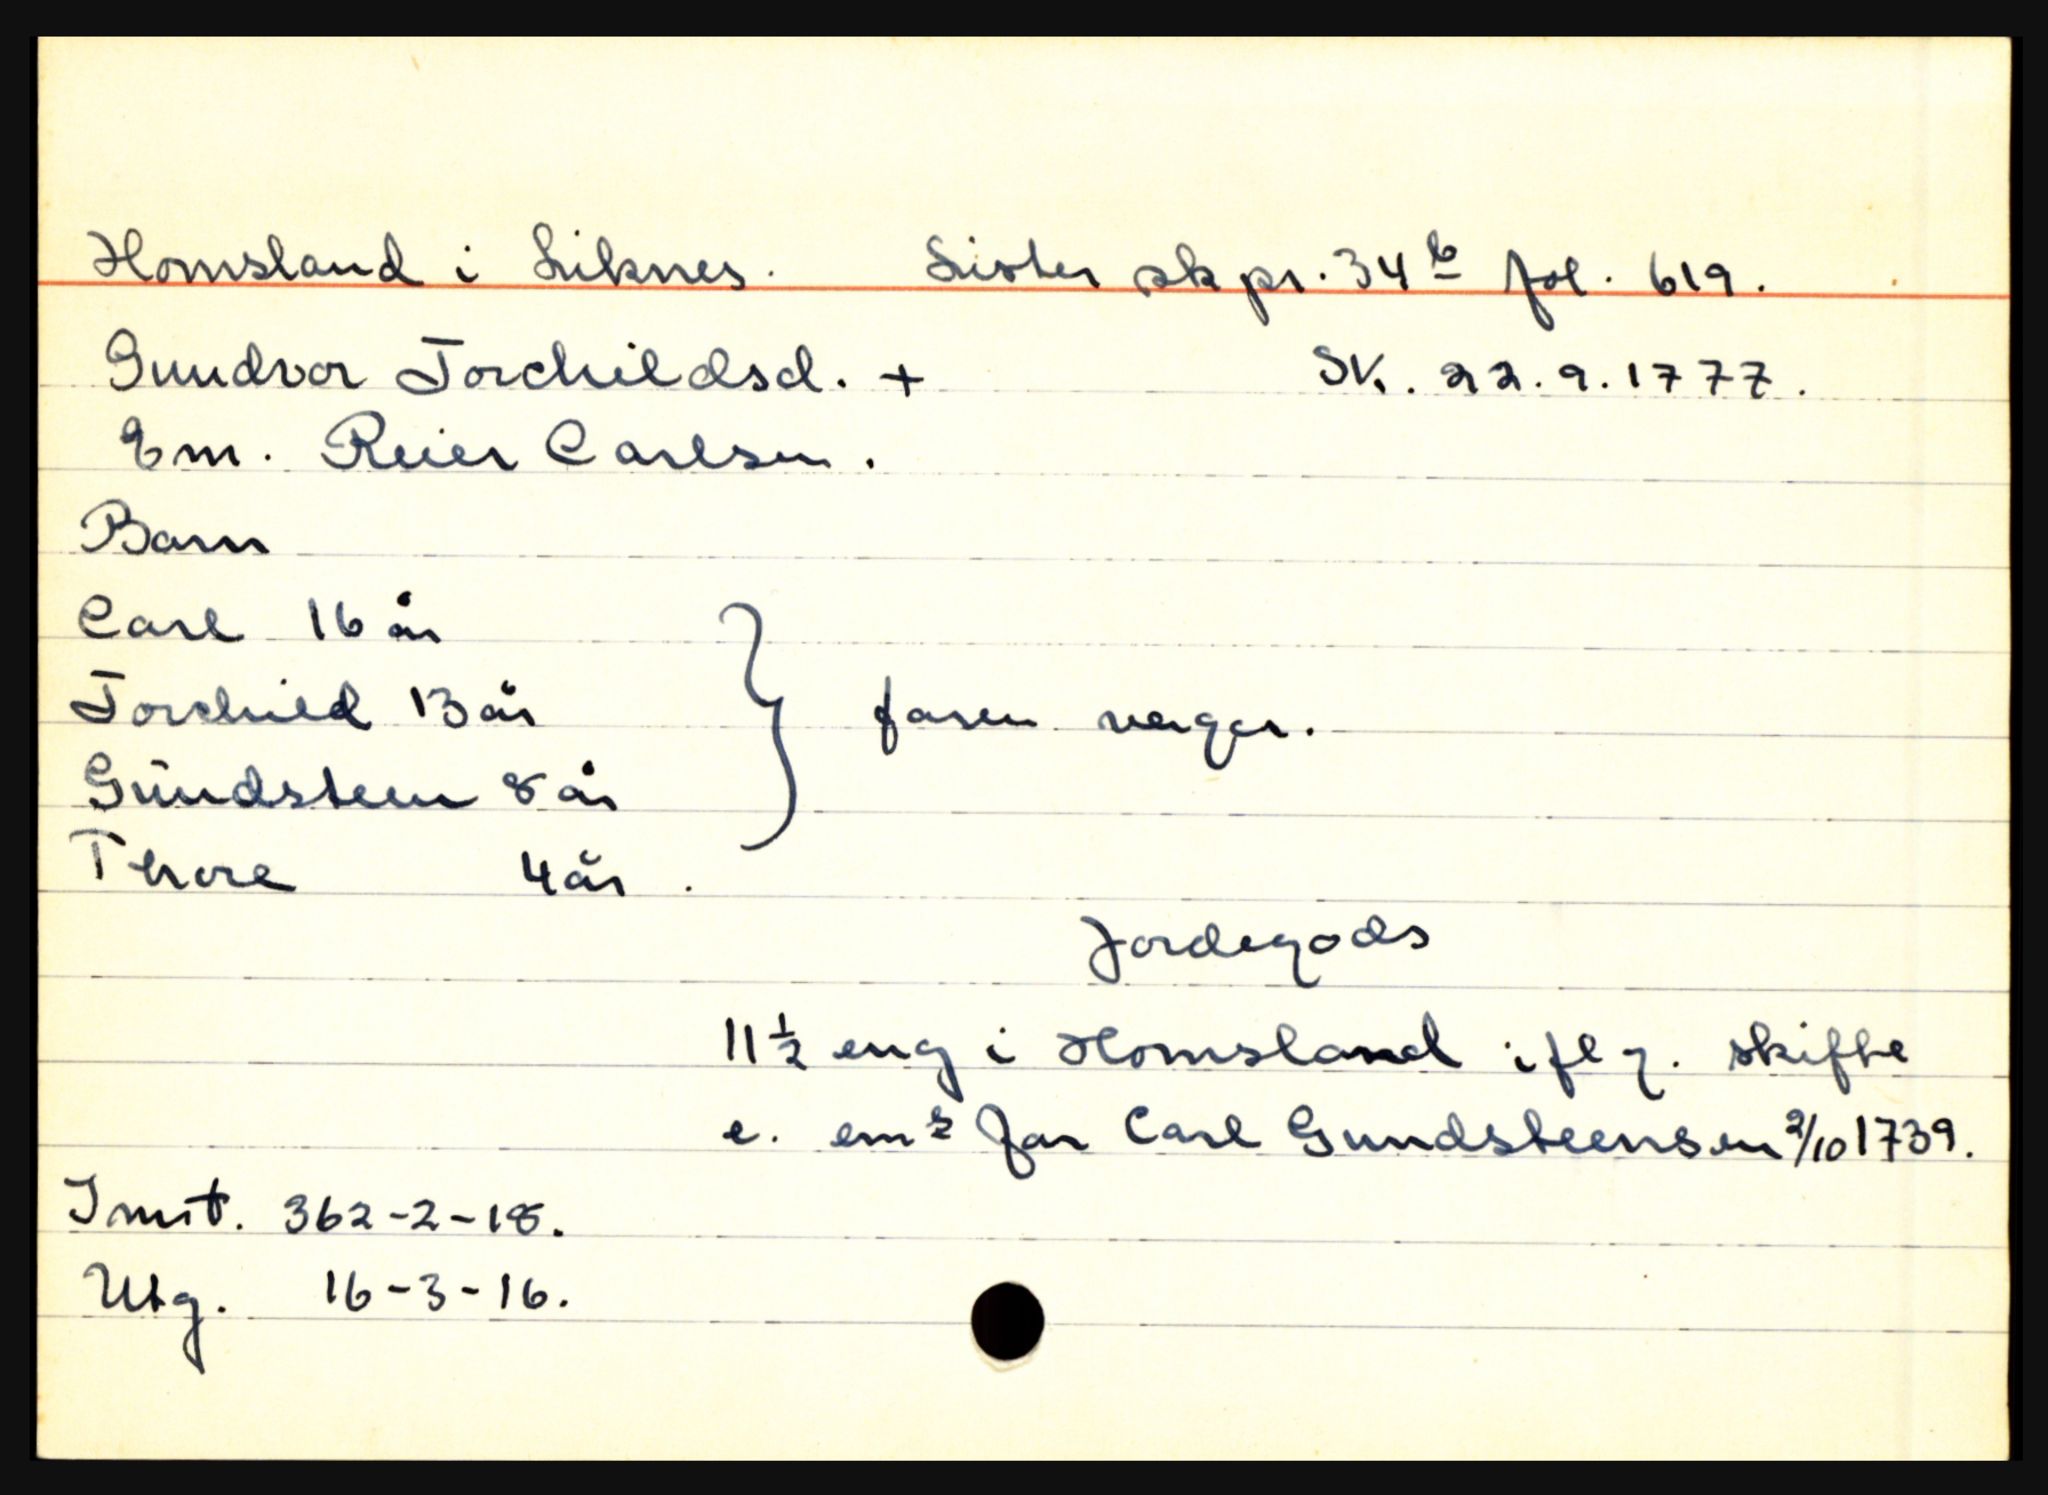 Homsland i Liknes. Lister sk pr. 34 b fol. 619.
Gundvor Torchildsd. + Sk. 22.9.1777.
Em. Reier Carlsen.
Barn
Carl 16 år
Torchild 13 år
faren verger.
Gündsteen 8 år
Thore 4 år.
Jordegods
11½ eng i Homsland iflg. skifte
e. ems far Carl Gundsteensen 2/10 1739.
Innt. 362-2-18.
Utg. 16-3-16.